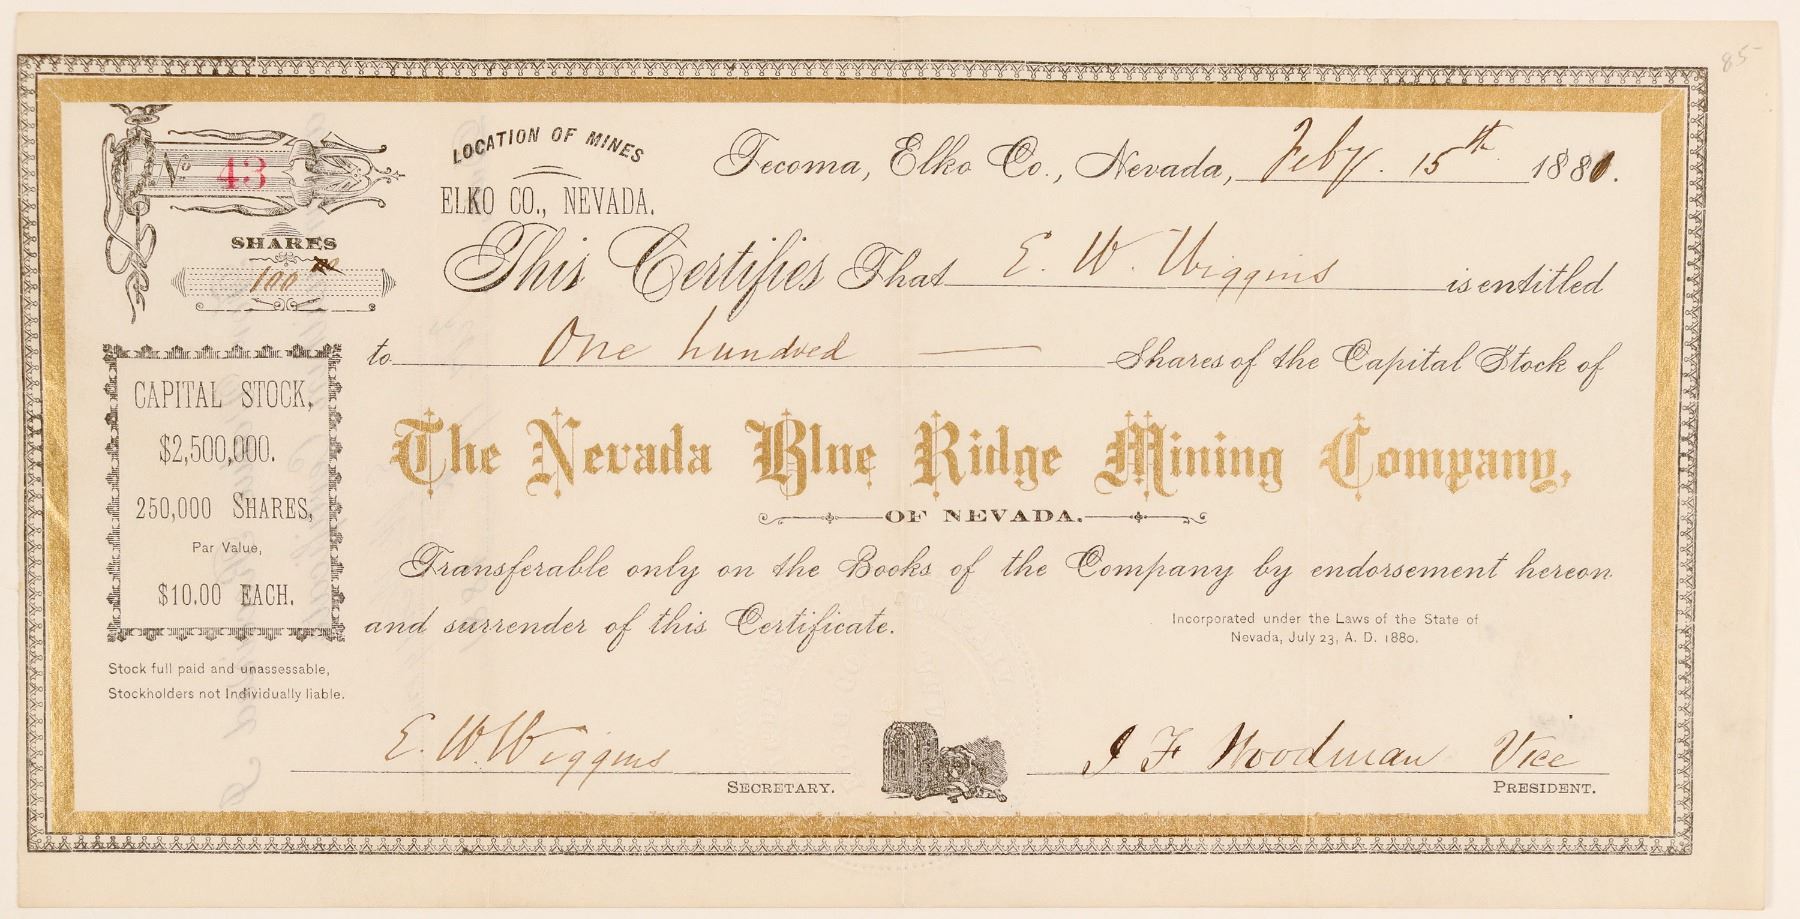 85-
No 43
LOCATION OF MINES
ELKO CO., NEVADA.
Tecoma, Elko Co., Nevada, Feby. 15th 1881.
SHARES
100 00
This Certifies That E. W. Wiggins is entitled
to One hundred — Shares of the Capital Stock of
CAPITAL STOCK,
$2,500,000.
250,000 SHARES,
Par Value,
$10.00 EACH.
The Nevada Blue Ridge Mining Company,
OF NEVADA.
Transferable only on the Books of the Company by endorsement hereon
and surrender of this Certificate.
Incorporated under the Laws of the State of
Nevada, July 23, A. D. 1880.
Stock full paid and unassessable,
Stockholders not Individually liable.
E. W. Wiggins
SECRETARY.
J F Woodman Vice
PRESIDENT.